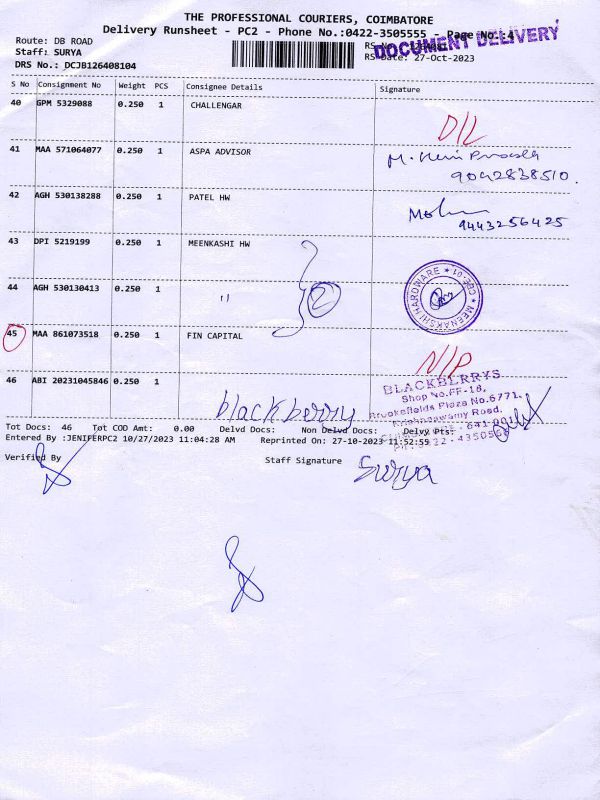 THE PROFESSIONAL COURIERS, COIMBATORE
Delivery Runsheet - PC2 - Phone No.:0422-3505555 - Page No.:4
DOCUMENT DELIVERY
Route: DB ROAD
Staff: SURYA
RS No.:
DRS No.: DCJB126408104
RS Date: 27-Oct-2023
S No Consignment No Weight PCS Consignee Details Signature
40 GPM 5329088 0.250 1 CHALLENGAR
D/L
41 MAA 571064077 0.250 1 ASPA ADVISOR
9042838510.
42 AGH 530138288 0.250 1 PATEL HW
9443256425
43 DPI 5219199 0.250 1 MEENKASHI HW
MEENAKSHI HARDWARE * CBE-01 *
44 AGH 530130413 0.250 1 " 2
45 MAA 861073518 0.250 1 FIN CAPITAL
N/P
46 ABI 20231045846 0.250 1
blackberry
BLACKBERRYS
Shop No.FF-18,
Brookefields Plaza No.6771,
Krishnaswamy Road,
Tot Docs: 46 Tot COD Amt: 0.00 Delvd Docs: Non Delvd Docs: Delvy Pts:
Entered By :JENIFERPC2 10/27/2023 11:04:28 AM Reprinted On: 27-10-2023 11:52:59
Verified By Staff Signature Surya